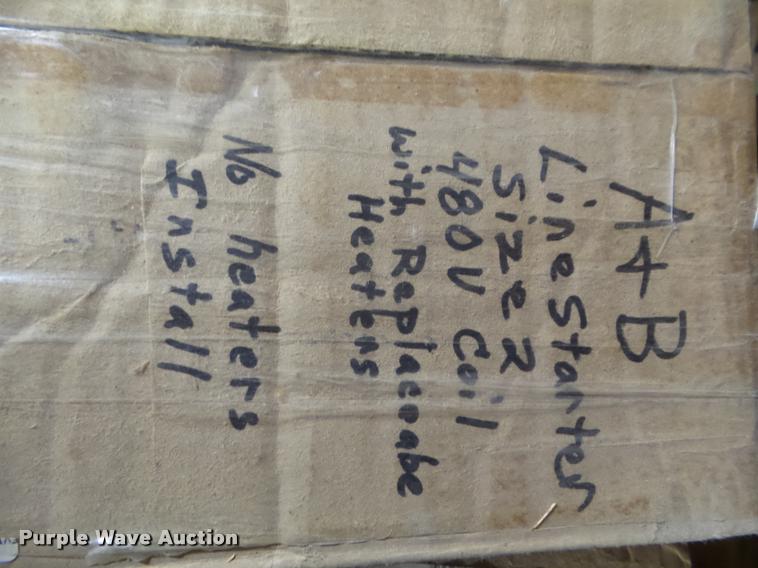 A+B
Line Starter
Size 2
480V Coil
with Replaceabe
Heaters
No heaters
Install
Purple Wave Auction